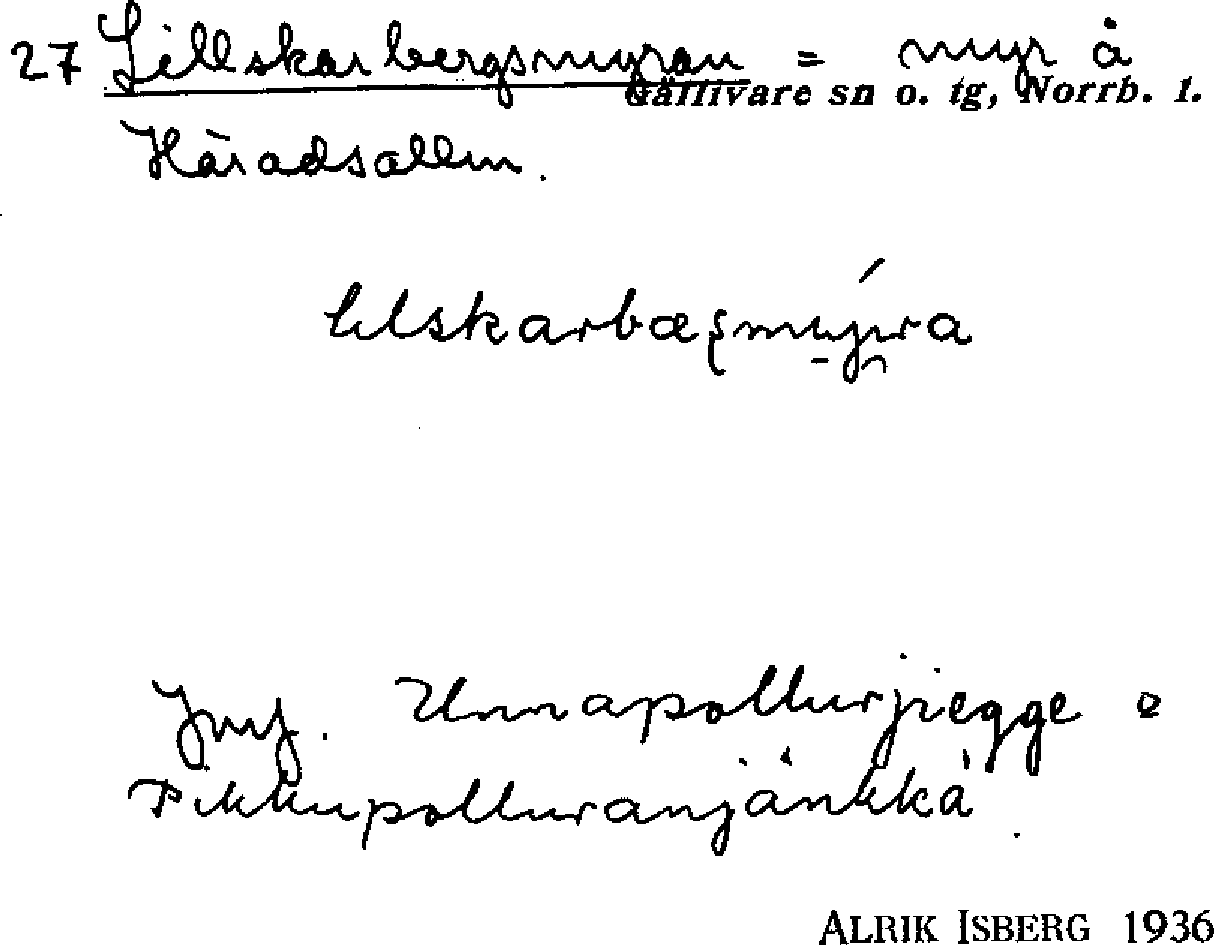 27 Lillskarbergsmyran = myr å
Gällivare sn o. tg, Norrb. l.
Häradsallm.
lilskarbæʂmy̱ŕa
Jmf. Unnapollurjiegge o
Pikkupolluranjänkkä.
ALRIK ISBERG 1936